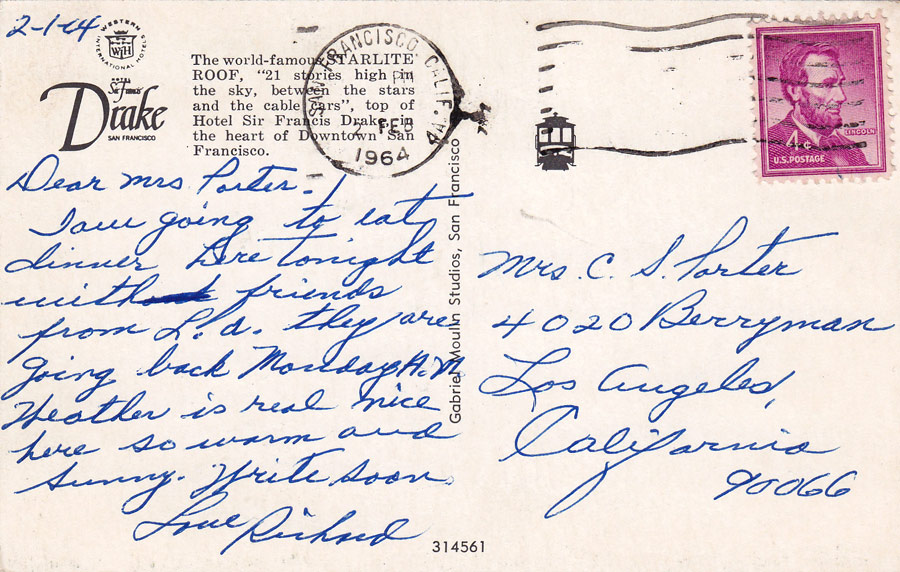 2-1-64
WESTERN
INTERNATIONAL HOTELS
WIH
HOTEL
Sir Francis
Drake
SAN FRANCISCO
The world-famous STARLITE
ROOF, "21 stories high in
the sky, between the stars
and the cable cars", top of
Hotel Sir Francis Drake in
the heart of Downtown San
Francisco.
SAN FRANCISCO, CALIF.
PM
2 FEB
1964
4¢
LINCOLN
U.S. POSTAGE
Dear Mrs Porter -
I am going to eat
dinner here tonight
with friends
from L.A. they are
going back Monday A.M
Weather is real nice
here so warm and
sunny. Write soon
Love Richard
Gabriel Moulin Studios, San Francisco
Mrs. C. S. Porter
4020 Berryman
Los Angeles,
California
90066
314561